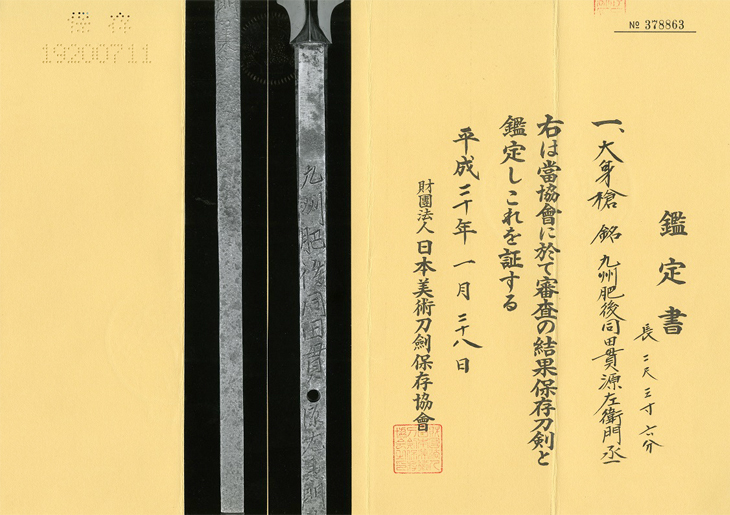 № 378863
鑑定書
長 二尺三寸六分
一、大身槍 銘 九州肥後同田貫源左衛門丞
右は當協會に於て審査の結果保存刀剣と
鑑定しこれを証する
平成二十年 一月二十八日
財團法人 日本美術刀劍保存協會
九州肥後同田貫源左衛門
保存
19200711